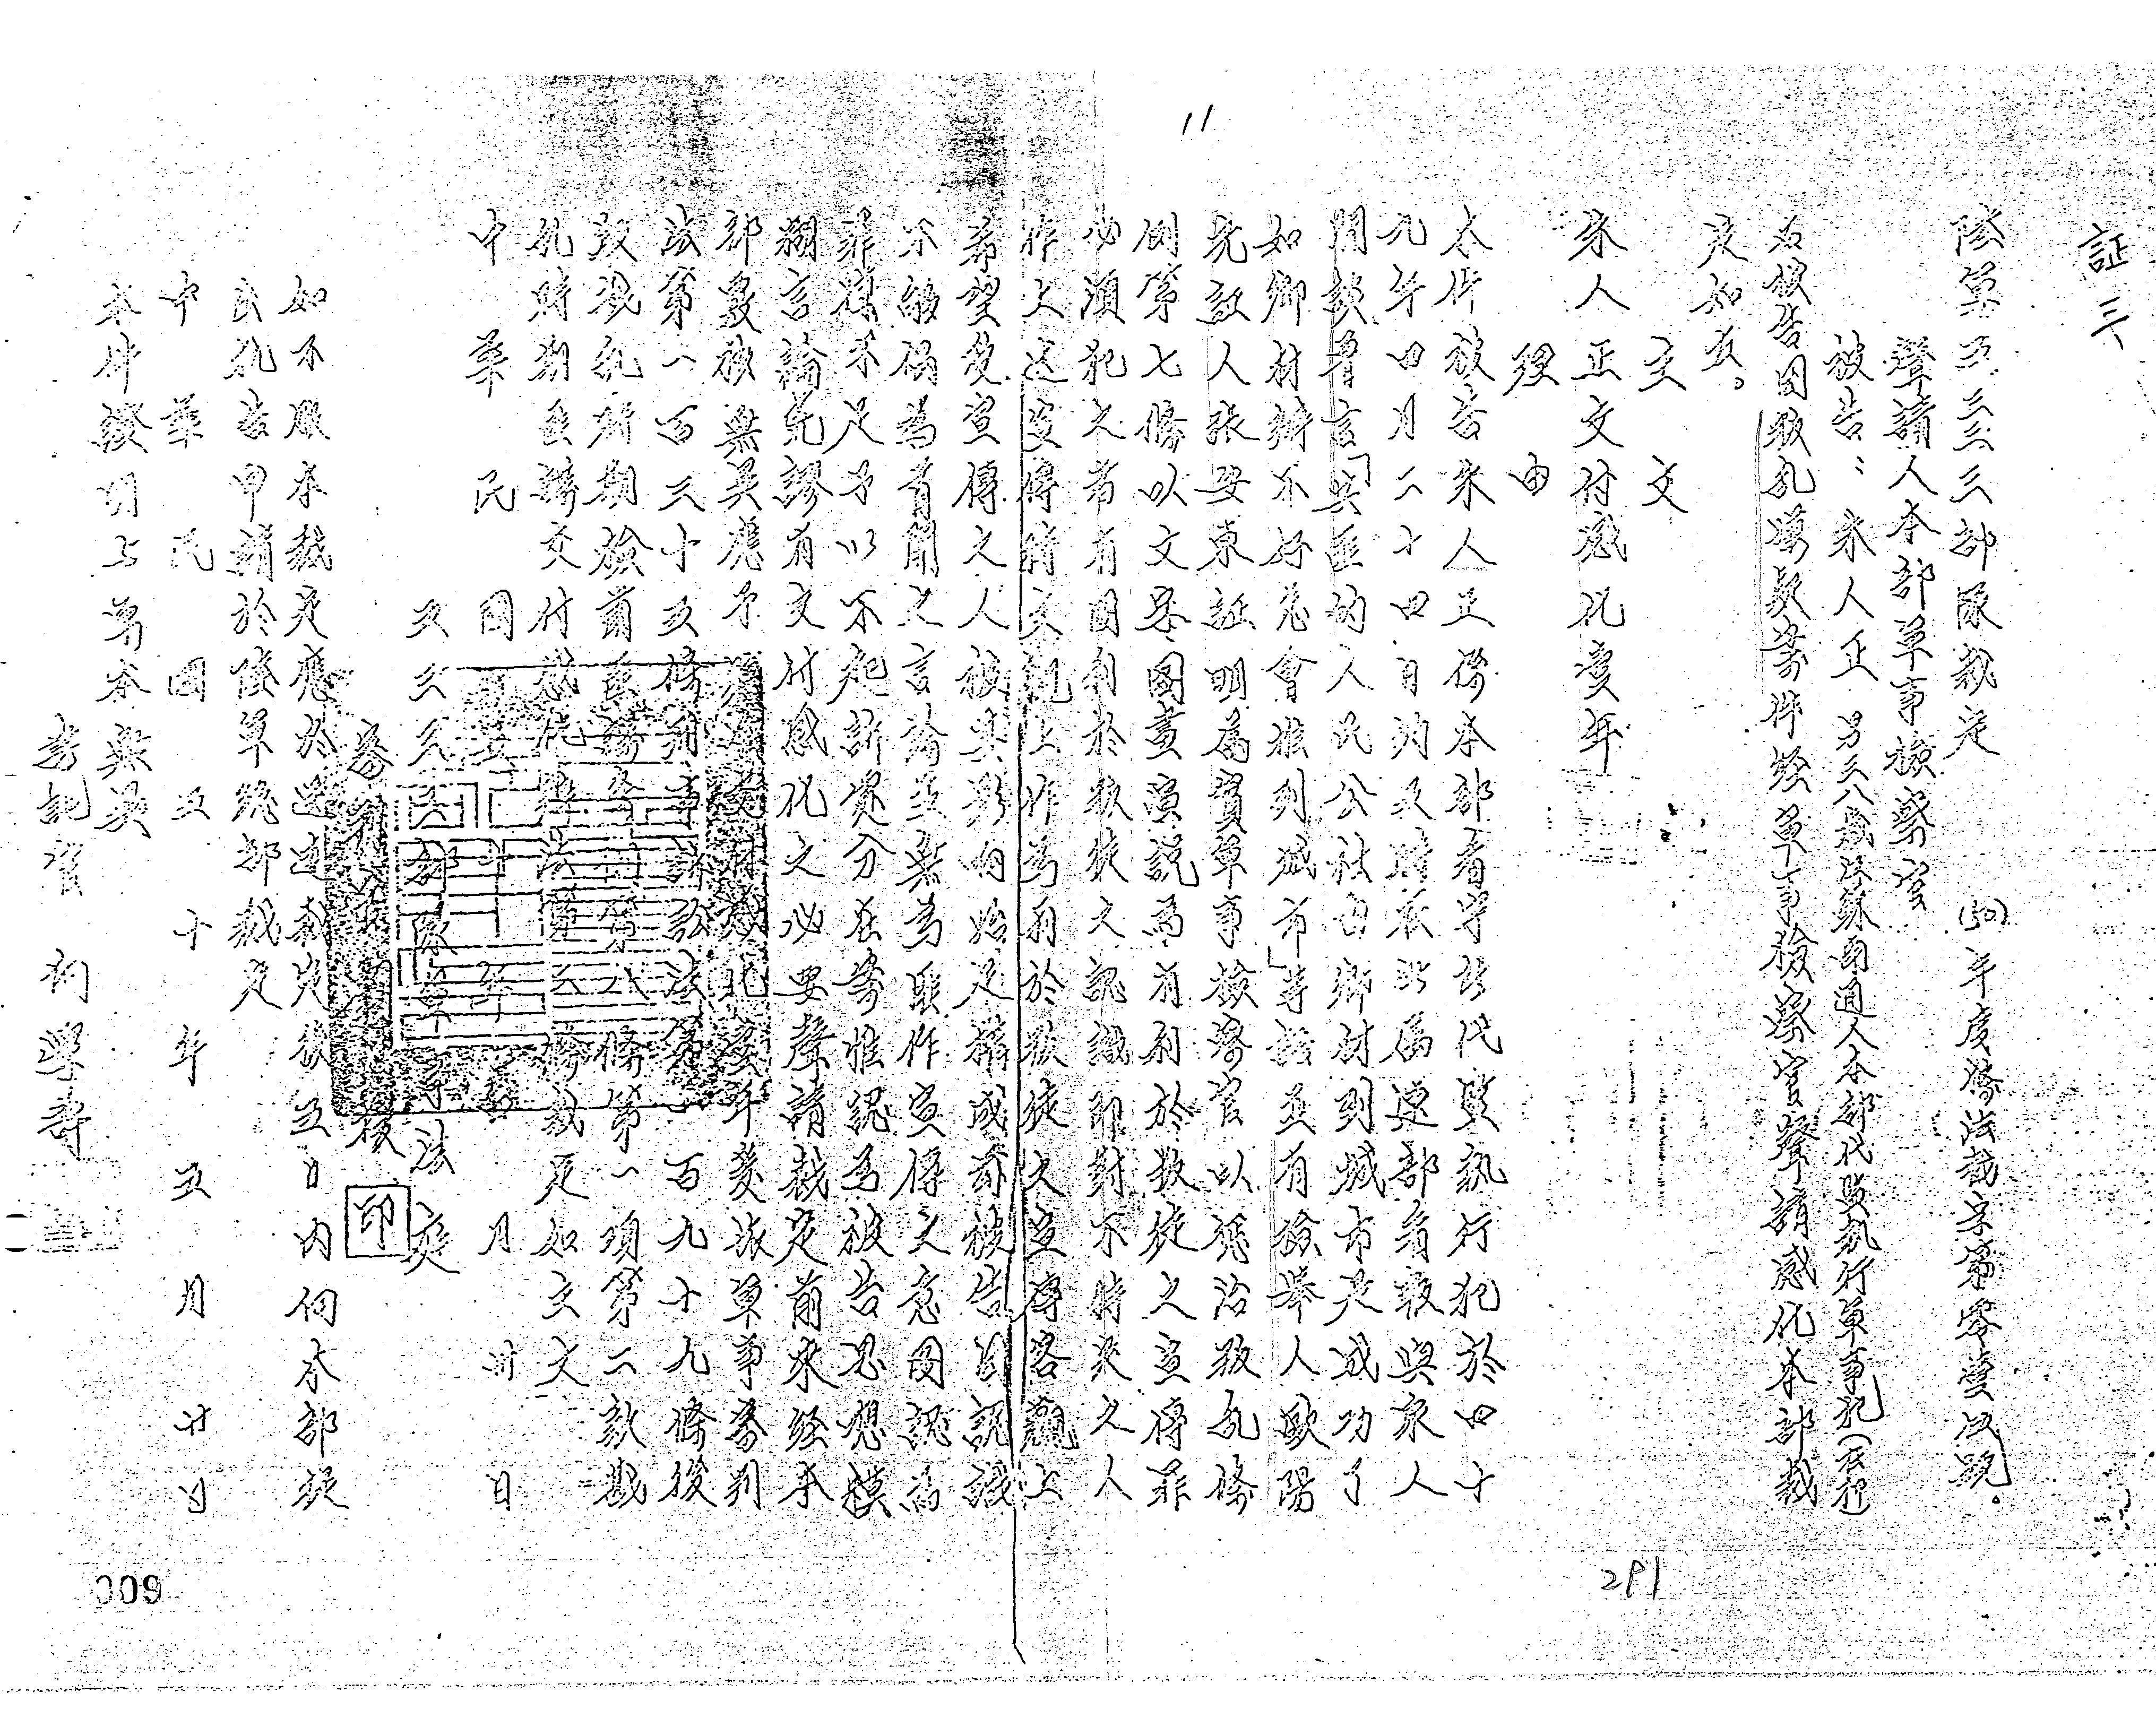 11
証三
陸軍三三三三部隊裁定 (50)年度滌法裁字第零壹伍號
聲請人本部軍事檢察官
被告：朱人正 男三八歲江蘇南通人本部代監執行軍事犯(在押)
右被告因叛亂嫌疑等件經軍事檢察官聲請感化本部裁
定如左。
主文
朱人正交付感化壹年
理由
本件被告朱人正係本部看守所代監執行犯於四十
九年四月二十四日約 時在 部看 與眾人
閒談曾言「共匪的人民公社由鄉村到城市是成功了
如鄉村辦不好怎會推到城市」等語並有檢舉人歐陽
光証人張安東証明屬實軍事檢察官以懲治叛亂條
例第七條以文字圖畫演說為有利於叛徒之宣傳罪
必須犯之者有圖利於叛徒之認識即對不特定之人
作上述宣傳時主觀上作為有利於叛徒之宣傳客觀上
希望受宣傳之人被其影响始足構成前被告 認識
不能僅為 之言論並無為匪作宣傳之意圖認為
罪嫌不足予以不起訴處分在案惟認為被告思想模
糊言論荒謬有交付感化之必要聲請裁定前來經本
部 核無異應予 感化壹年爰依軍事審判
法第一百三十五條刑事訴訟法第一百九十九條後
段 亂 期檢肅匪諜條例第八條第一項第二款戡
亂時期匪諜交付感化辦法第三條裁定如主文
中華民國五十年 月卅日
三三三三部隊軍事法庭
審判官 印
如不服本裁定應於送達裁定後五日內向本部提
出抗告 於陸軍總部裁定
中華民國五十年五月廿日
本件證明与原本無異
書記官 何學奇
009
291